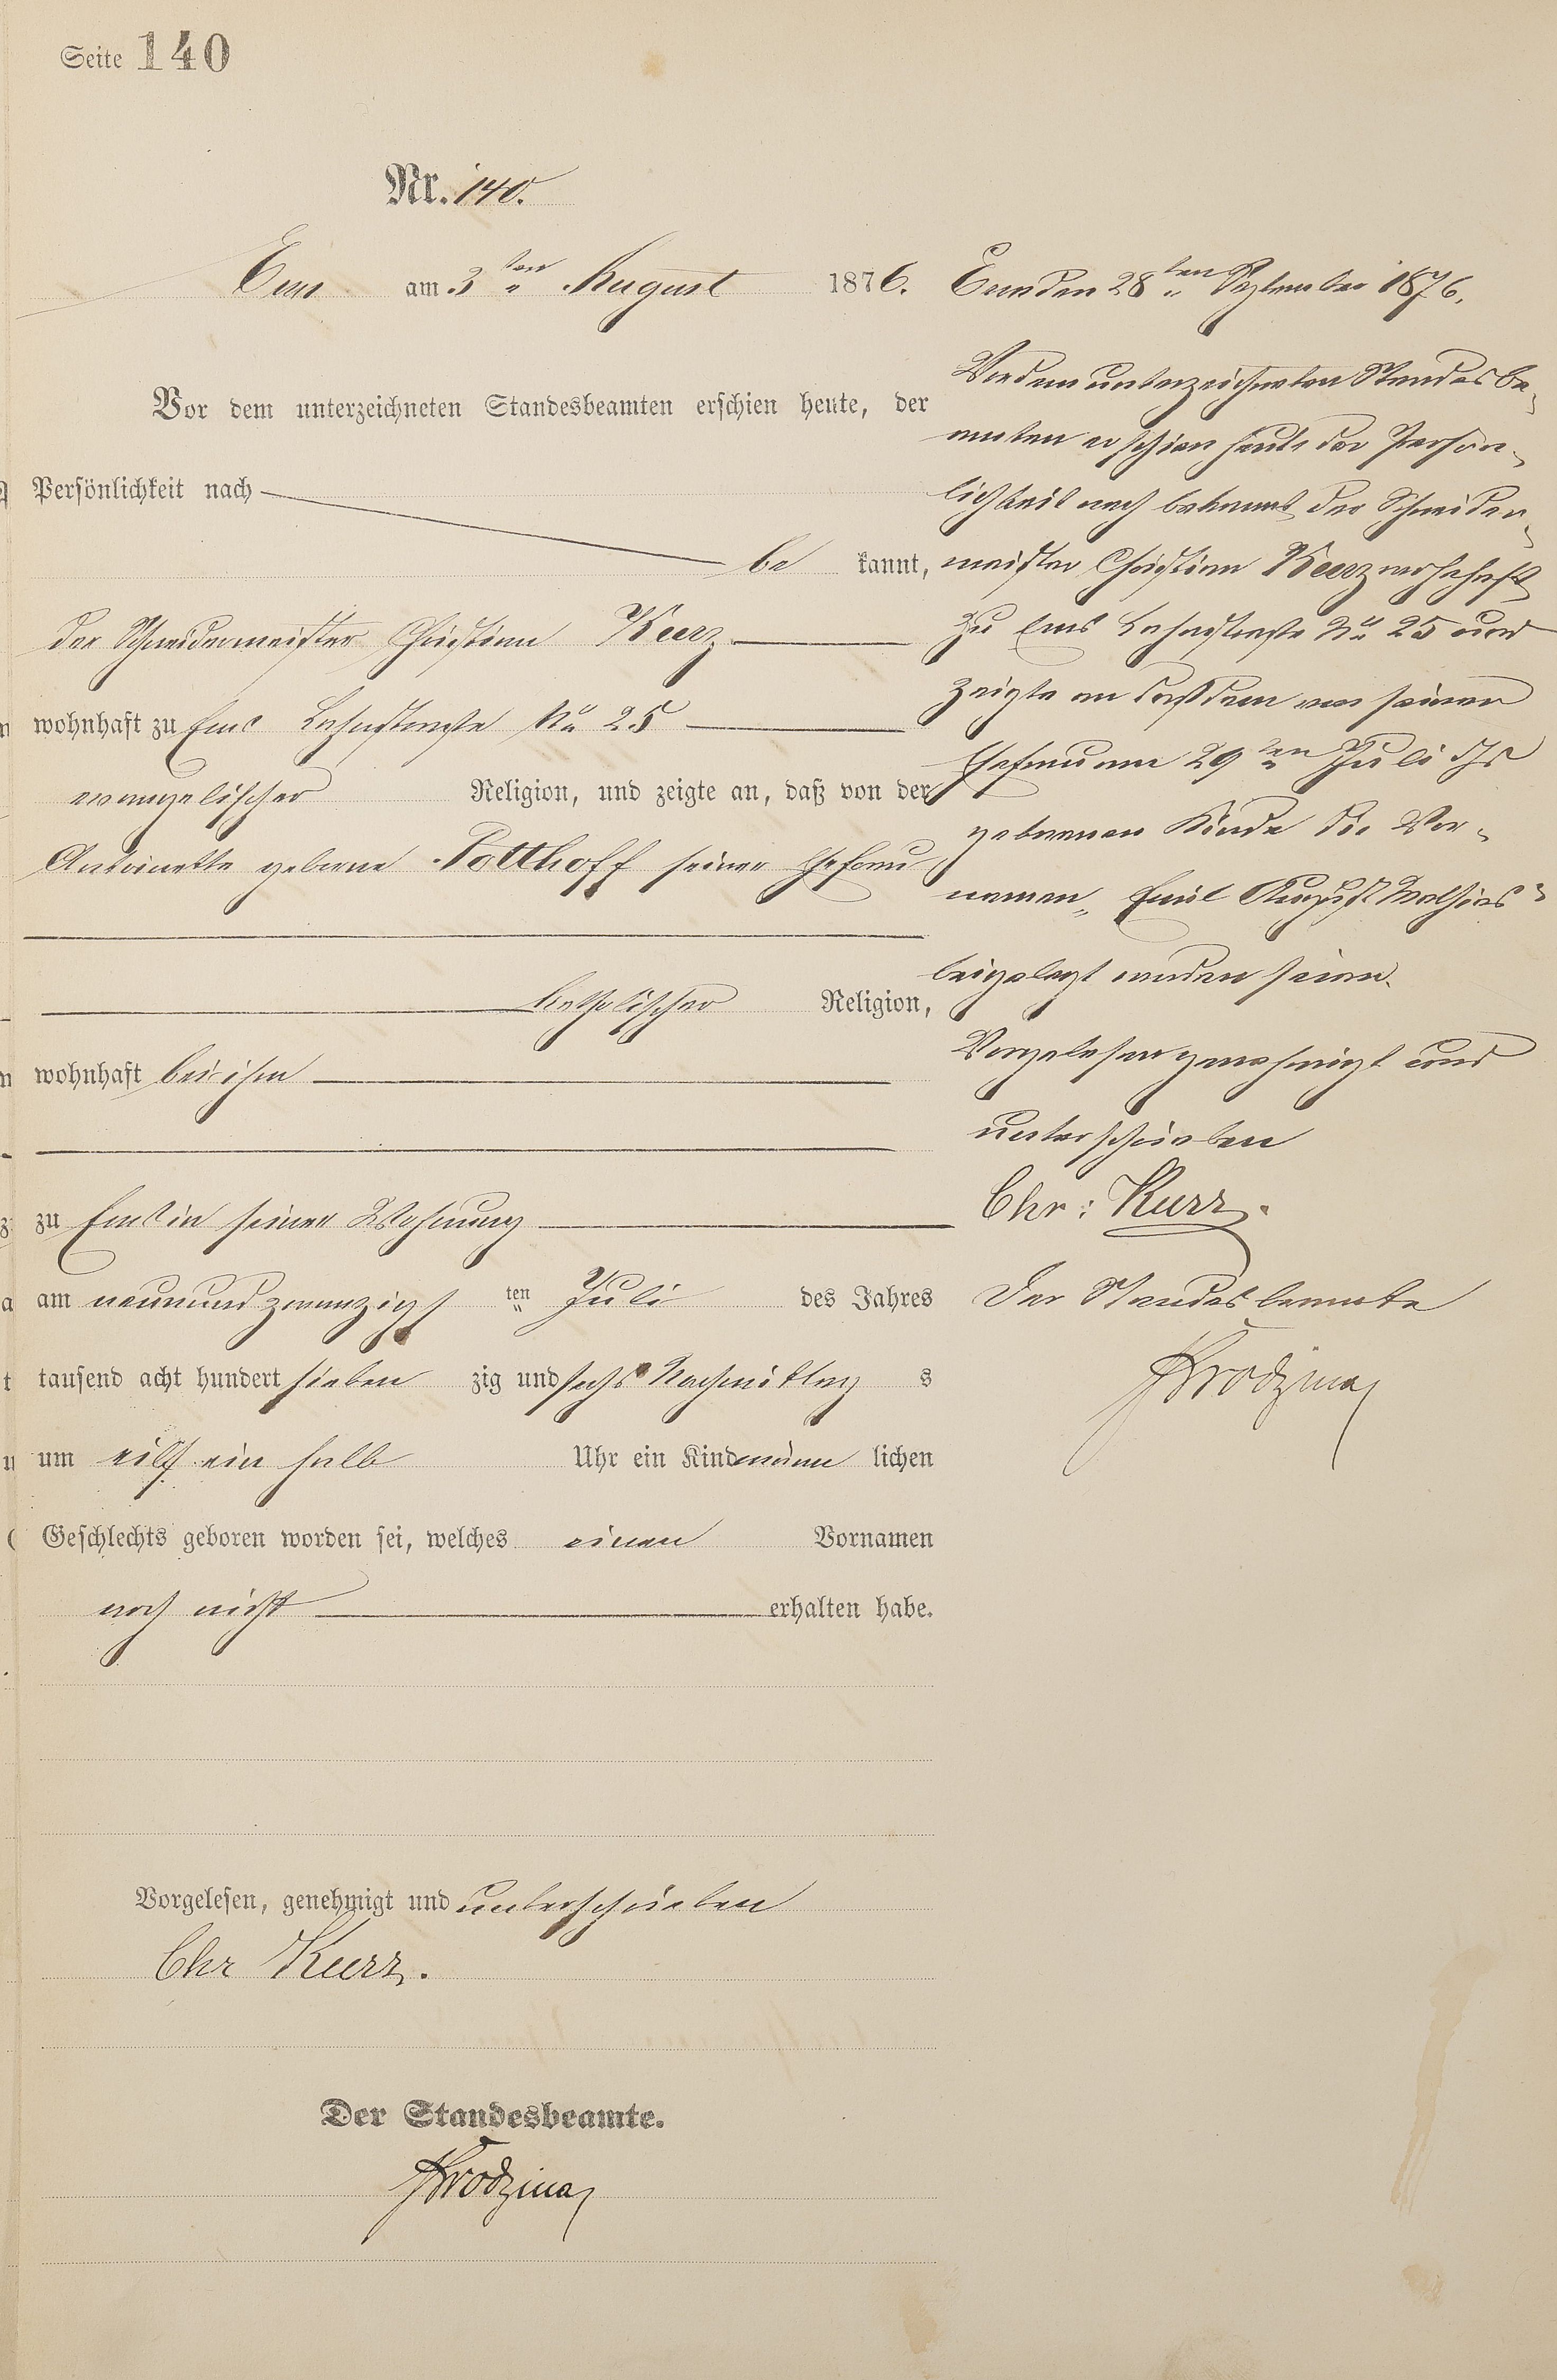 Seite 140
Nr. 140.
Ems am 3ten August 1876.
Vor dem unterzeichneten Standesbeamten erschien heute, der
Persönlichkeit nach
be kannt,
der Schneidermeister Christian Kurz
wohnhaft zu Ems Lahnstraße No 25
evangelischer Religion, und zeigte an, daß von der
Antoinette geborne Potthoff seiner Ehefrau
katholischer Religion,
wohnhaft bei ihm
zu Ems in seiner Wohnung
am neunundzwanzigs ten Juli des Jahres
tausend acht hundert sieben zig und sechs Nachmittag s
um eilf ein halb Uhr ein Kind männ lichen
Geschlechts geboren worden sei, welches einen Vornamen
noch nicht erhalten habe.
Vorgelesen, genehmigt und unterschrieben
Chr Kurz.
Der Standesbeamte.
Ems den 28ten September 1876.
Vor dem unterzeichneten Standesbe-
amten erschien heute der Persön-
lichkeit nach bekannt der Schneider-
meister Christian Kurz wohnhaft
zu Ems Lahnstraße No 25 und
zeigte an daß dem von seiner
Ehefrau am 29ten Juli ds Js
geborenen Kinde die Vor-
namen „Emil August Mathias"
beigelegt worden seien.
Vorgelesen genehmigt und
unterschrieben
Chr: Kurz.
Der Standesbeamte